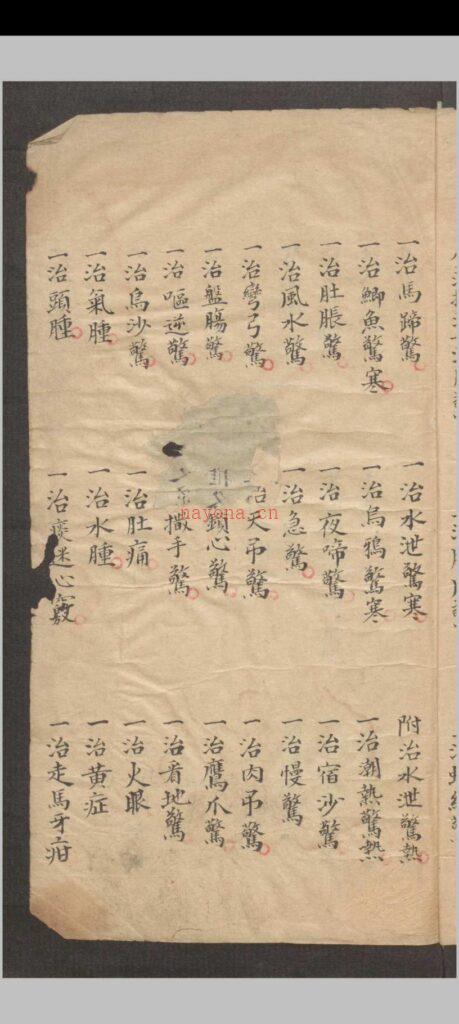 一治馬蹄驚 一治水泄驚寒 附治水泄驚熱
一治鯽魚驚寒 一治烏鴉驚寒 一治潮熱驚熱
一治肚脹驚 一治夜啼驚 一治宿沙驚
一治風水驚 一治急驚 一治慢驚
一治彎弓驚 治天吊驚 一治肉吊驚
一治盤腸驚 鎖心驚 一治鷹爪驚
一治嘔逆驚 撒手驚 一治看地驚
一治烏沙驚 一治肚痛 一治火眼
一治氣腫 一治水腫 一治黃症
一治頭腫 一治痰迷心竅 一治走馬牙疳
nayona.cn